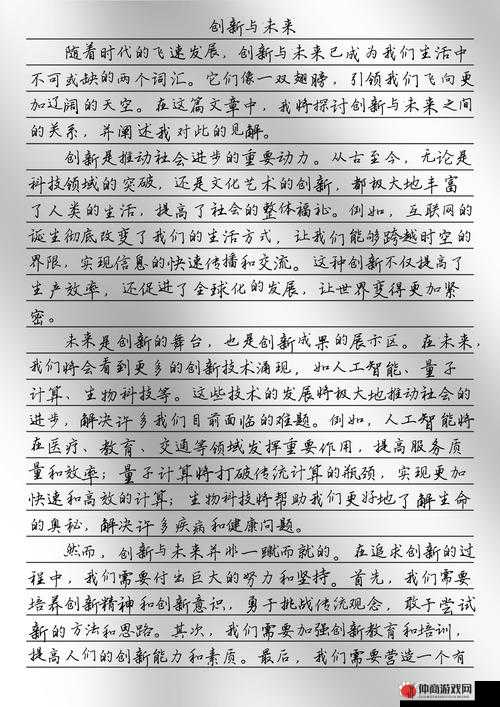 创新与未来
随着时代的飞速发展，创新与未来已成为我们生活中
不可或缺的两个词汇。它们像一双翅膀，引领我们飞向更
加辽阔的天空。在这篇文章中，我将探讨创新与未来之间
的关系，并阐述我对此的见解。
创新是推动社会进步的重要动力。从古至今，无论是
科技领域的突破，还是文化艺术的创新，都极大地丰富
了人类的生活，提高了社会的整体福祉。例如，互联网的
诞生彻底改变了我们的生活方式，让我们能够跨越时空的
界限，实现信息的快速传播和交流。这种创新不仅提高了
生产效率，还促进了全球化的发展，让世界变得更加紧
密。
未来是创新的舞台，也是创新成果的展示区。在未来，
我们将会看到更多的创新技术涌现，如人工智能、量子
计算、生物科技等。这些技术的发展将极大地推动社会的
进步，解决许多我们目前面临的难题。例如，人工智能将
在医疗、教育、交通等领域发挥重要作用，提高服务质
量和效率；量子计算将打破传统计算的瓶颈，实现更加
快速和高效的计算；生物科技将帮助我们更好地了解生命
的奥秘，解决许多疾病和健康问题。
然而，创新与未来并非一蹴而就的。在追求创新的过
程中，我们需要付出巨大的努力和坚持。首先，我们需要
培养创新精神和创新意识，勇于挑战传统观念，敢于尝试
新的方法和思路。其次，我们需要加强创新教育和培训，
提高人们的创新能力和素质。最后，我们需要营造一个有
仲商游戏网